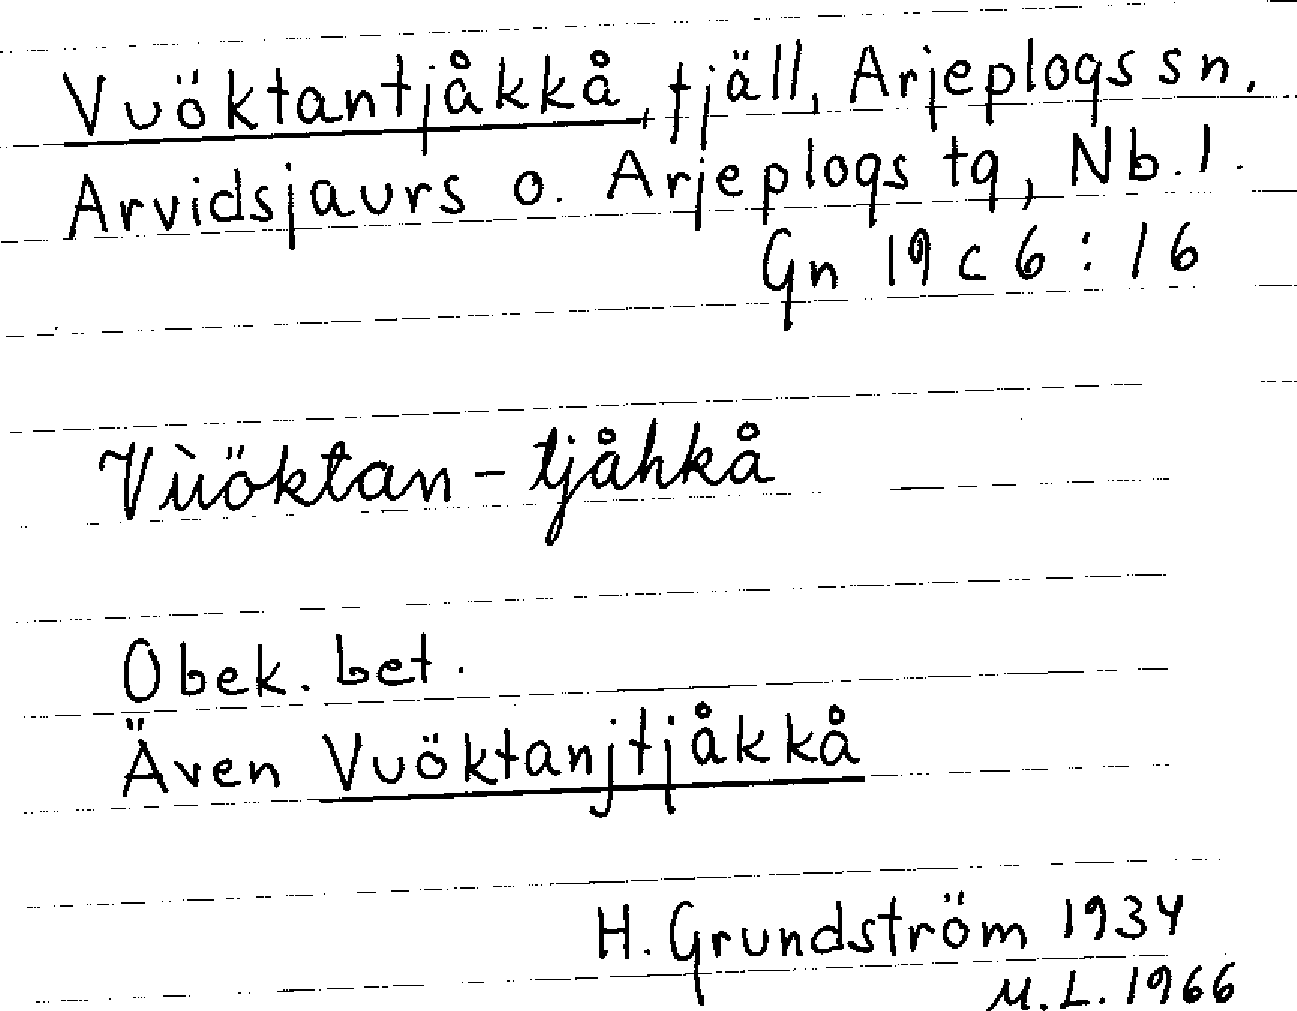 Vuöktantjåkkå, fjäll, Arjeplogs sn,
Arvidsjaurs o. Arjeplogs tg, Nb. l.
Gn 19 c 6 : 16
Vùöktan - tjåhkå
Obek. bet.
Även Vuöktanjtjåkkå
H. Grundström 1934
M. L. 1966